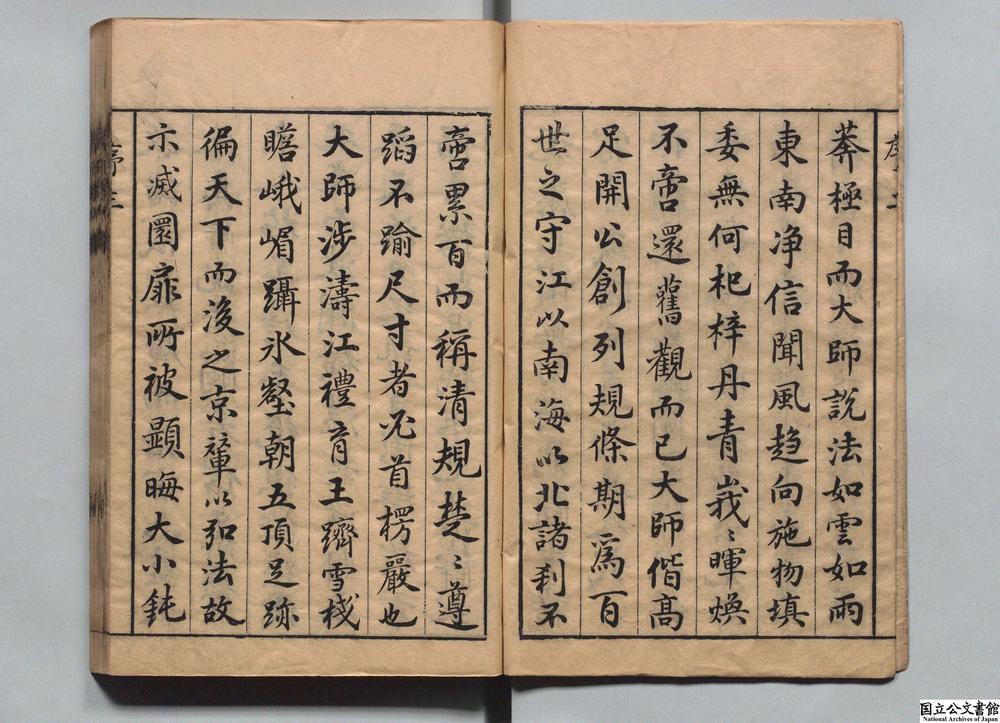 莾極目而大師說法如雲如雨
東南净信聞風趋向施物填
委無何杞梓丹青峩〻暉煥
不啻還舊觀而已大師偕高
足開公創列規條期爲百
世之守江以南海以北諸刹不
啻累百而稱清規楚〻遵
蹈不踰尺寸者必首楞嚴也
大師涉濤江禮育王躋雪棧
瞻峨嵋躡氷壑朝五頂足跡
徧天下而後之京輦以弘法故
示滅圜扉所被顯晦大小鈍
序三
国立公文書館
National Archives of Japan